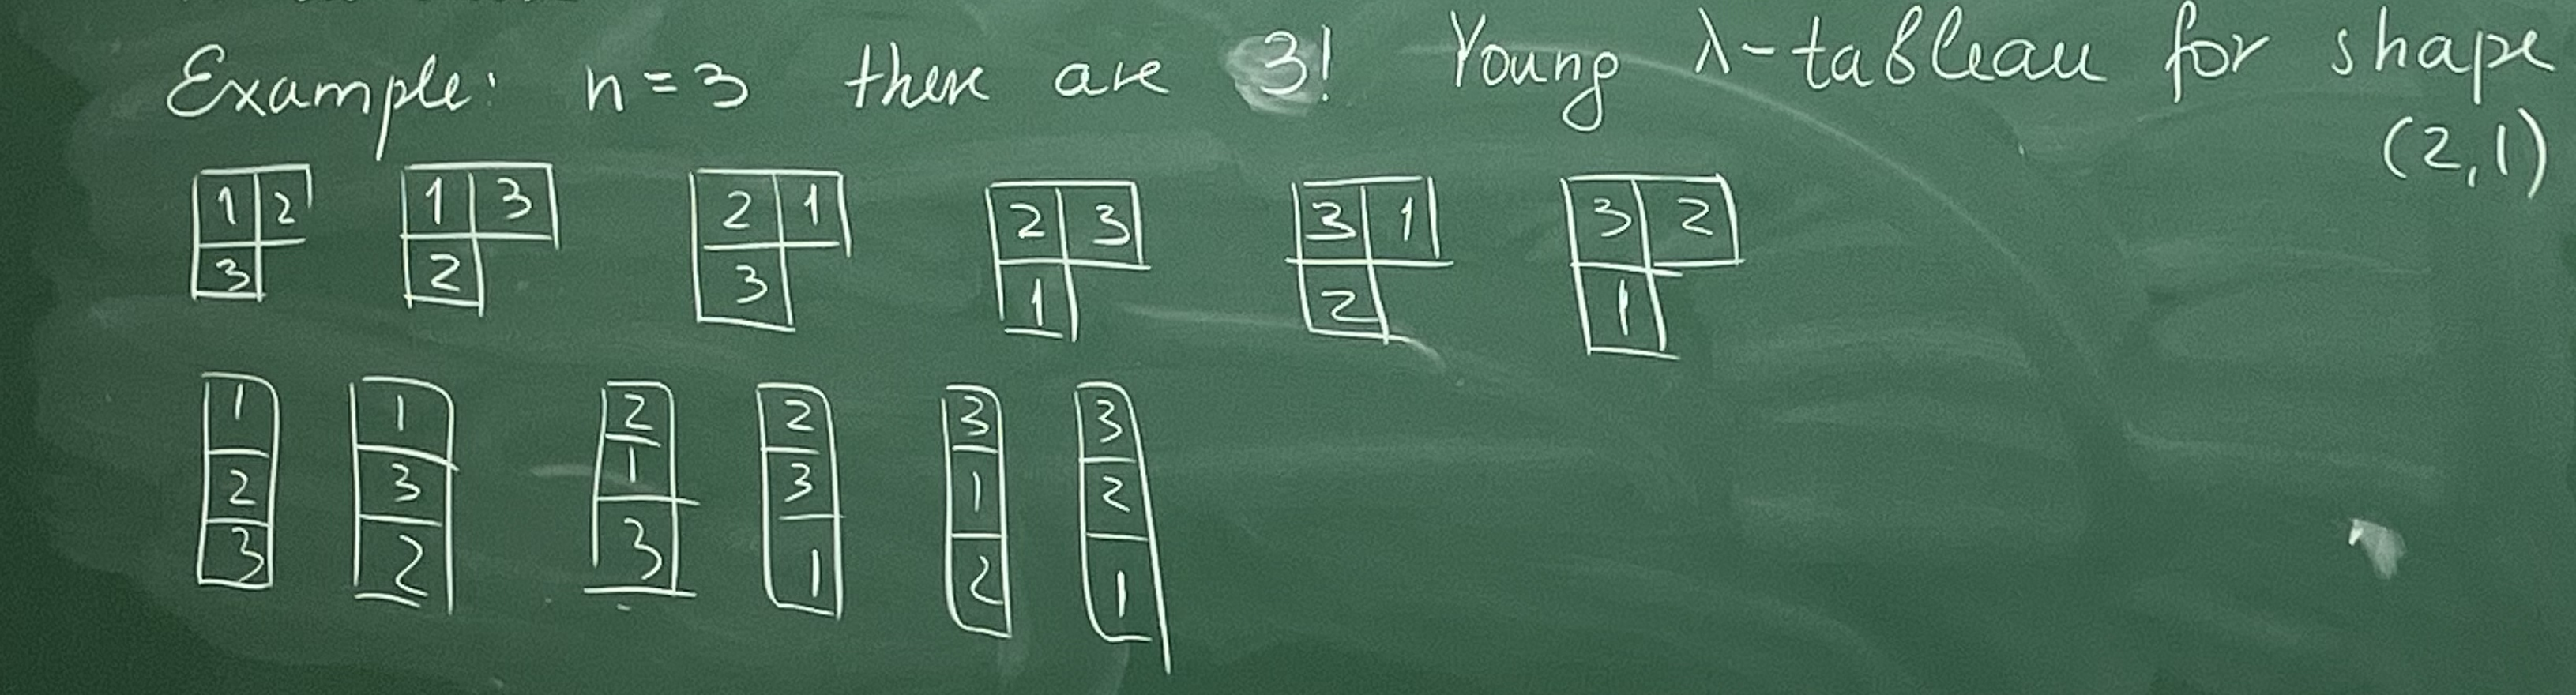 Example: n=3 there are 3! Young λ-tableau for shape
(2,1)
1 2 1 3 2 1 2 3 3 1 3 2
3 2 3 1 2 1
1 1 2 2 3 3
2 3 1 3 1 2
3 2 3 1 2 1